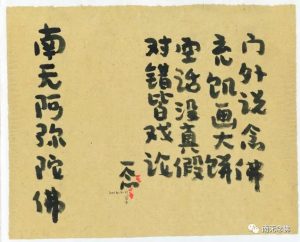 门外说念佛
充饥画大饼
空话没真假
对错皆戏论
一念
南无阿弥陀佛